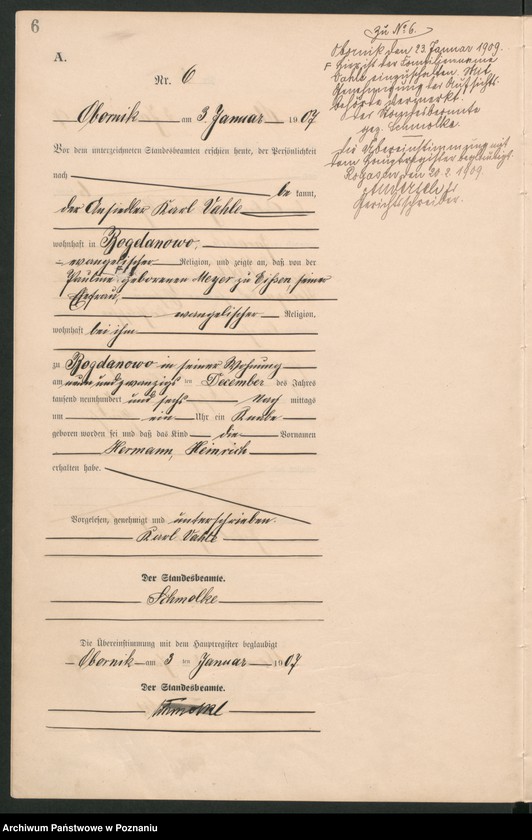 6
A.
Nr. 6
Obornik am 3. Januar 1907
Vor dem unterzeichneten Standesbeamten erschien heute, der Persönlichkeit
nach
be kannt,
der Ansiedler Karl Vahle
wohnhaft in Bogdanowo,
evangelischer Religion, und zeigte an, daß von der
Pauline geborenen Meyer zu Eißen, seiner
Ehefrau,
evangelischer Religion,
wohnhaft bei ihm
zu Bogdanowo in seiner Wohnung
am neun und zwanzigsten December des Jahres
tausend neunhundert und sechs Nach mittags
um ein Uhr ein Knabe
geboren worden sei und daß das Kind die Vornamen
Hermann, Heinrich
erhalten habe.
Vorgelesen, genehmigt und unterschrieben.
Karl Vahle
Der Standesbeamte.
Schmolke
Die Übereinstimmung mit dem Hauptregister beglaubigt
Obornik am 3 ten Januar 1907
Der Standesbeamte.
Schmolke
Zu No 6.
Obornik den 23. Januar 1909.
F Hinter der Familienname
Vahle einzuschalten. Mit
Genehmigung der Aufsichts-
behörde vermerkt.
Der Standesbeamte
gez. Schmolke.
Die Übereinstimmung mit
dem Hauptregister beglaubigt.
Rogasen den 20. 2. 1909.
Gerichtsschreiber.
Archiwum Państwowe w Poznaniu